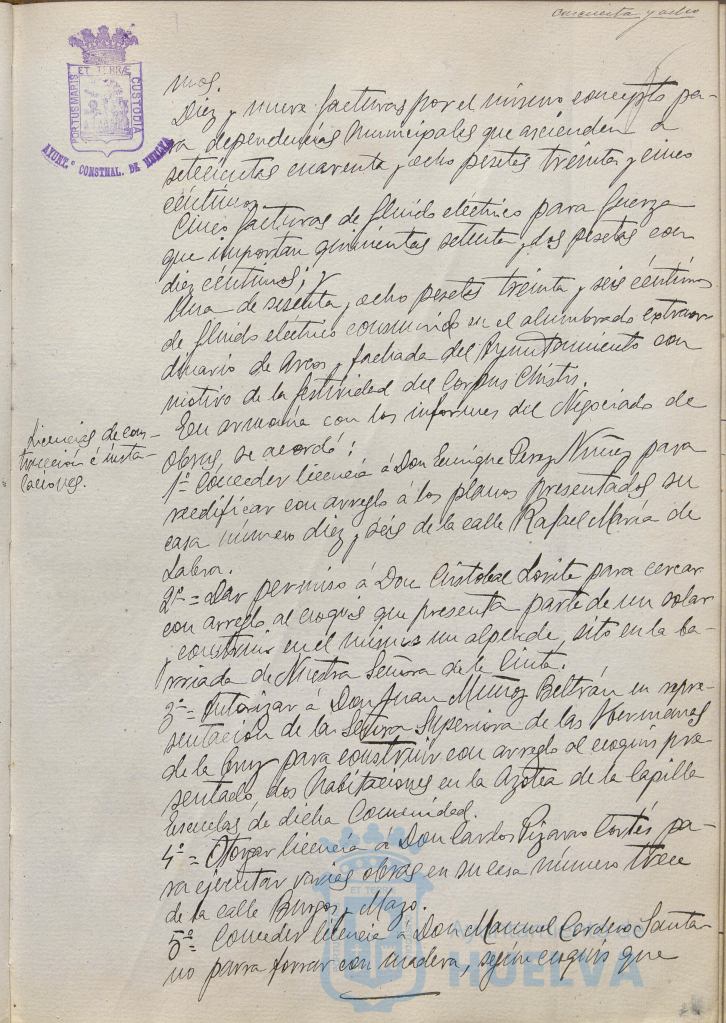 cincuenta y ocho
ET TERRÆ
PORTUS MARIS
CUSTODIA
AYUNT.º CONSTNAL. DE HUELVA
mos.
Diez y nueve facturas por el mismo concepto pa-
ra dependencias Municipales que ascienden a
setecientas cuarenta y ocho pesetas treinta y cinco
céntimos.
Cinco facturas de fluido eléctrico para fuerza
que importan quinientas setenta y dos pesetas con
diez céntimos; y
Una de sesenta y ocho pesetas treinta y seis céntimos
de fluido eléctrico consumido en el alumbrado extraor-
dinario de Arcos y fachada del Ayuntamiento con
motivo de la festividad del Corpus Christi.
Licencias de cons-
trucción é insta-
laciones.
En armonía con los informes del Negociado de
obras, se acordó:
1º Conceder licencia á Don Enrique Perez Núñez para
reedificar con arreglo á los planos presentados su
casa número diez y seis de la calle Rafael María de
Labra.
2º = Dar permiso á Don Cristobal Lorite para cercar
con arreglo al croquis que presenta parte de un solar
y construir en el mismo un alpende, sito en la ba-
rriada de Nuestra Señora de la Cinta.
3º = Autorizar á Don Juan Muñoz Beltrán en repre-
sentación de la Señora Superiora de las Hermanas
de la Cruz para construir con arreglo al croquis pre-
sentado dos habitaciones en la Azotea de la Capilla
Escuelas de dicha Comunidad.
4º = Otorgar licencia á Don Carlos Pizarro Cortés pa-
ra ejecutar varias obras en su casa número trece
de la calle Burgos y Mazo.
5º = Conceder licencia á Don Manuel Cordero Santa-
no parra forrar con madera, según croquis que
ET TERRÆ
HUELVA